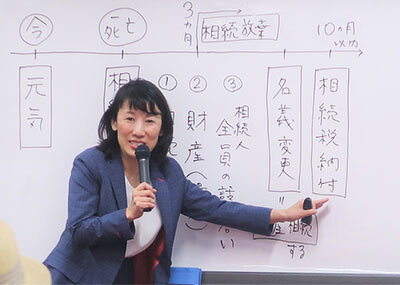 今
死亡
3ヵ月
相続放棄
10ヵ月以内
元気
相
①
②
財産
③
相続人
全員の話
い
名義変更
＝
相続
する
相続税納付